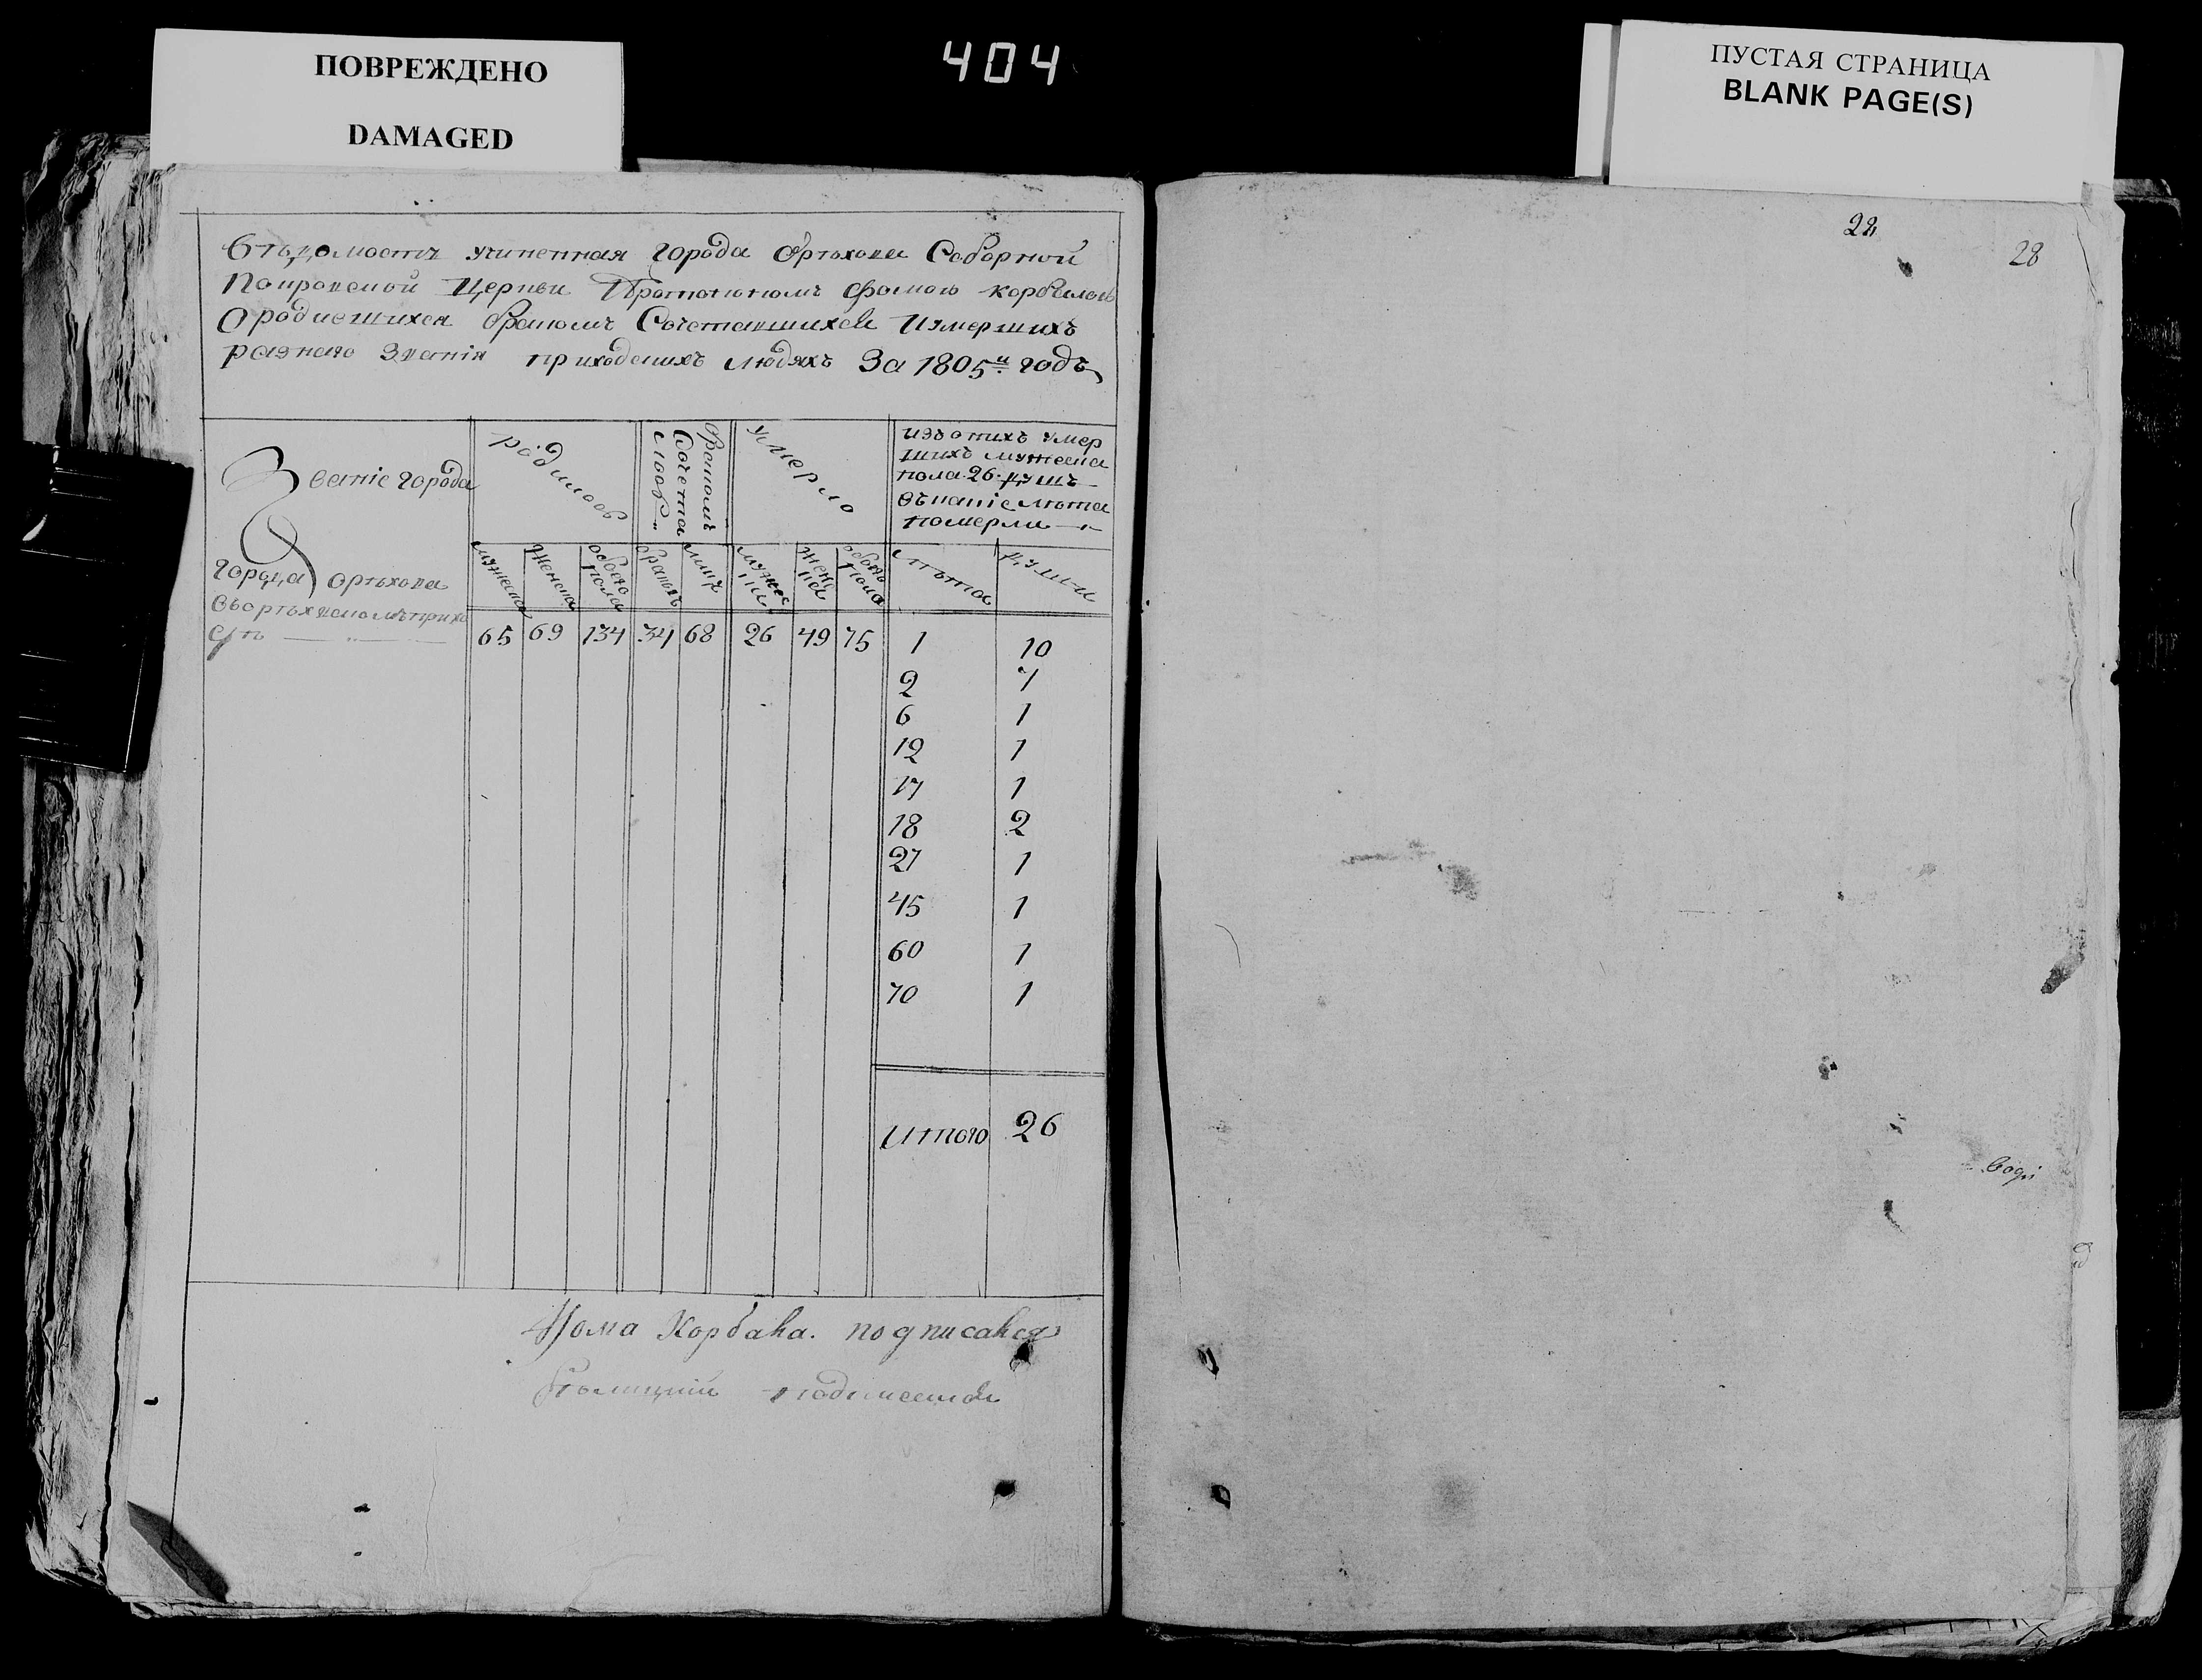 ПОВРЕЖДЕНО
DAMAGED
404
ПУСТАЯ СТРАНИЦА
BLANK PAGE(S)
22
28
Вѣдомость учиненная города Орѣхова Соборной
Покровской Церкви Протопопомъ Фомою
О родившихся бракомъ Сочетавшихся Иумершихъ
разнаго Званія приходскихъ людяхъ За 1805й годъ
Званіе города
родилось
бракомъ
Сочета
лось
умерло
изъ онихъ умер
шихъ мужеска
пола 26 душъ
въ какіе лѣта
померли
мужеска
женска
обоего пола
браковъ
лицъ
мужес
ка
жен
ска
обоего
пола
лѣта
души
города Орѣхова
Ворѣховскомъ прихо
дѣ
65 69 134 34 68 26 49 75 1 10
2 7
6 1
12 1
17 1
18 2
27 1
45 1
60 1
70 1
Итого 26
Фома Корбака. подписался
подписался